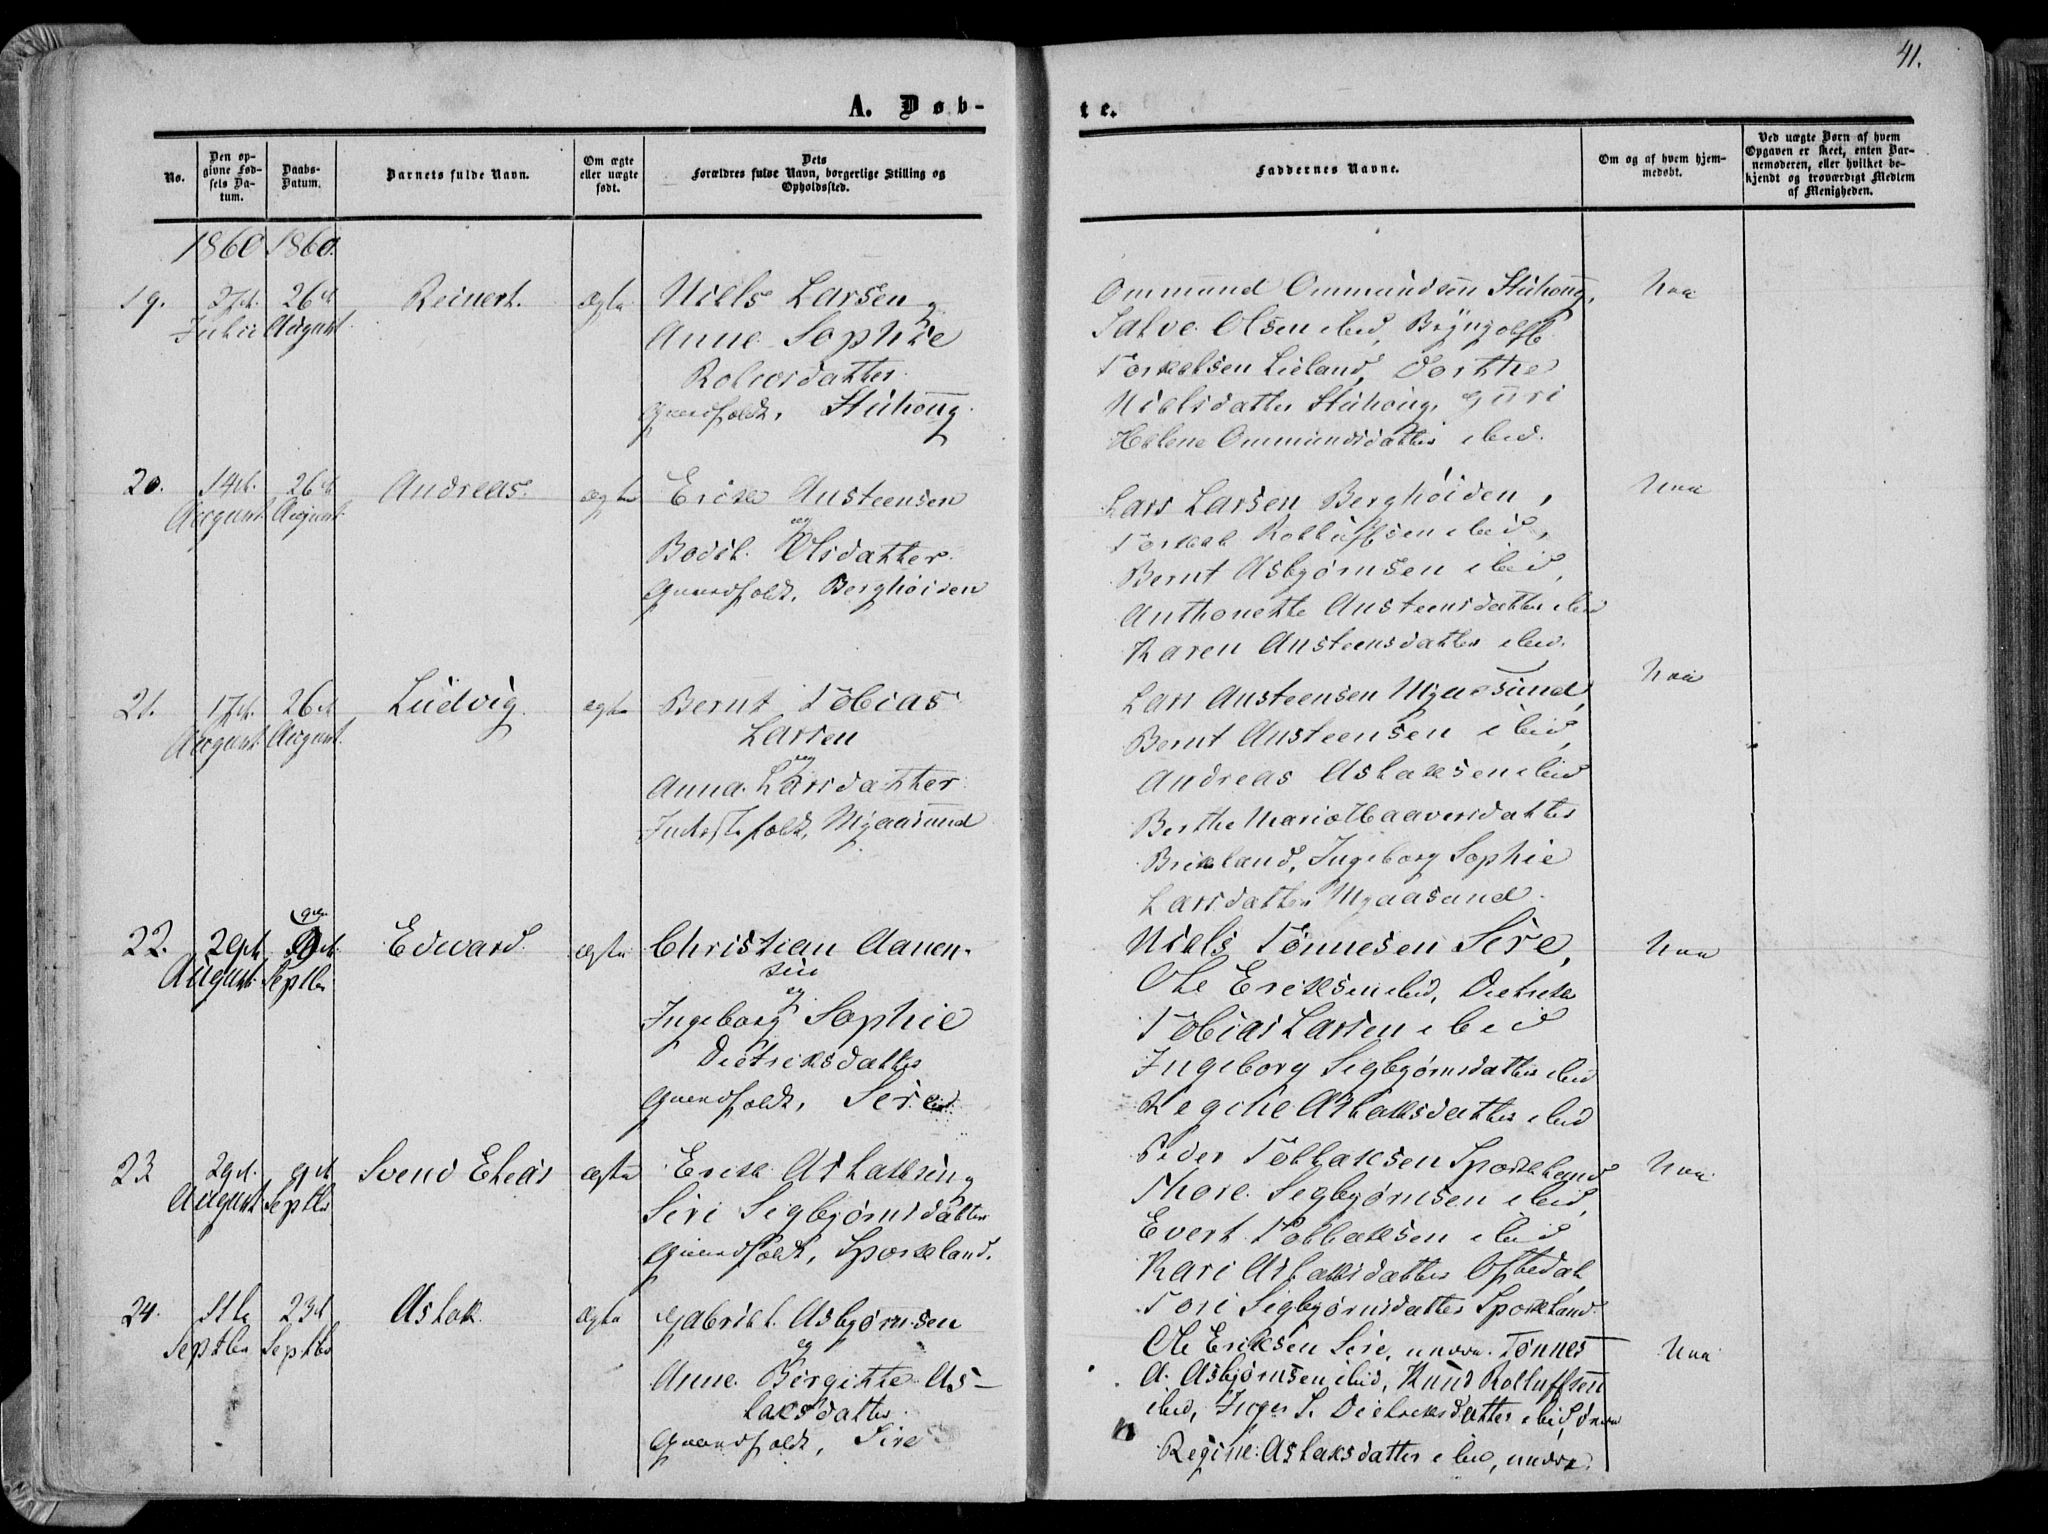 41.
A. Døb-
te.
No.
Den op-
givne Fød-
sels Da-
tum.
Daabs-
Datum.
Barnets fulde Navn.
Om ægte
eller uægte
født.
Dets
Forældres fulde Navn, borgerlige Stilling og
Opholdssted.
Faddernes Navne.
Om og af hvem hjem-
medøbt.
Ved uægte Børn af hvem
Opgaven er skeet, enten Bar-
nemoderen, eller hvilket be-
kjendt og troværdigt Medlem
af Menigheden.
1860 1860.
19.
26de
August
Reinert.
ægte
Niels Larsen og
Anne Sophie
datter
Gaardfolk,
Ommund Ommundsen
Salve Olsen ibid,
Lieland, Dorthe
Nielsdatter
Helene Ommundsdatter ibid.
20.
14de
August
26de
August
Andreas.
ægte
Erik Austeensen
og
Bodil Olsdatter
Gaardfolk, Berghöiden
Lars Larsen Berghöiden,
Torkel ibid,
Bernt Asbjørnsen ibid,
Anthonette Austeensdatter ibid
Karen Austeensdatter ibid.
21.
17de
August
26de
August
Ludvig
ægte
Bernt Tobias
Larsen
og
Anna Larsdatter
Mgaasund
Lars Austeensen Mgaasund,
Bernt Austeensen ibid,
Andreas Aslaksen ibid
Berthe Marie Haaversdatter
Birkeland, Ingeborg Sophie
Larsdatter Mgaasund.
22.
29de
August
Septbr
Edvard
ægte
Christian Aanen-
sen
og
Ingeborg Sophie
Dietriksdatter
Gaardfolk, Sire
Niels Tönnesen Sire,
Ole Eriksen ibid, Dietrik
Tobias Larsen ibid
Ingeborg Sigbjørnsdatter ibid
Regine Aslaksdatter ibid
23
29de
August
9de
Septbr
Svend Elias
ægte
Erik Aslaksen og
Siri Sigbjørnsdatter
Gaardfolk, Sporkland.
Peder Tollaksen Sporkland
Thore Sigbjørnsen ibid,
Evert Tollaksen ibid
Kari Aslaksdatter Oftedal,
Tori Sigbjørnsdatter Sporkland.
24.
Septbr
23de
Septbr
Aslak
ægte
Gabriel Asbjørnsen
og
Anne Birgitte As-
laksdatter
Gaardfolk, Sire
Ole Eriksen Sire, nedre. Tönnes
A. Asbjørnsen ibid, Knud Rolluffsen
ibid, Inger S. Dietriksdatter ibid,
Regine Aslaksdatter ibid, nedre.